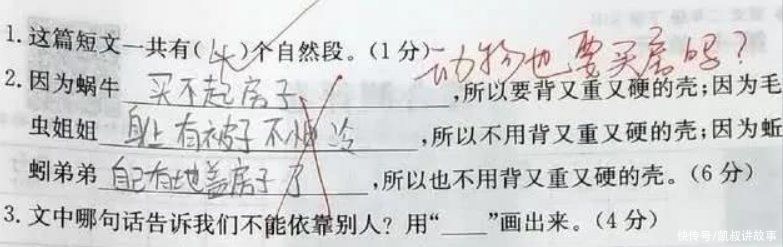 1.这篇短文一共有( 七 )个自然段。(1分)
动物也要买房吗?
2.因为蜗牛 买不起房子 ,所以要背又重又硬的壳;因为毛
虫姐姐 身上有被子不怕冷 ,所以不用背又重又硬的壳;因为蚯
蚓弟弟 自己有地盖房子了 ,所以也不用背又重又硬的壳。(6分)
3.文中哪句话告诉我们不能依靠别人?用“____”画出来。(4分)
快传号/凯叔讲故事